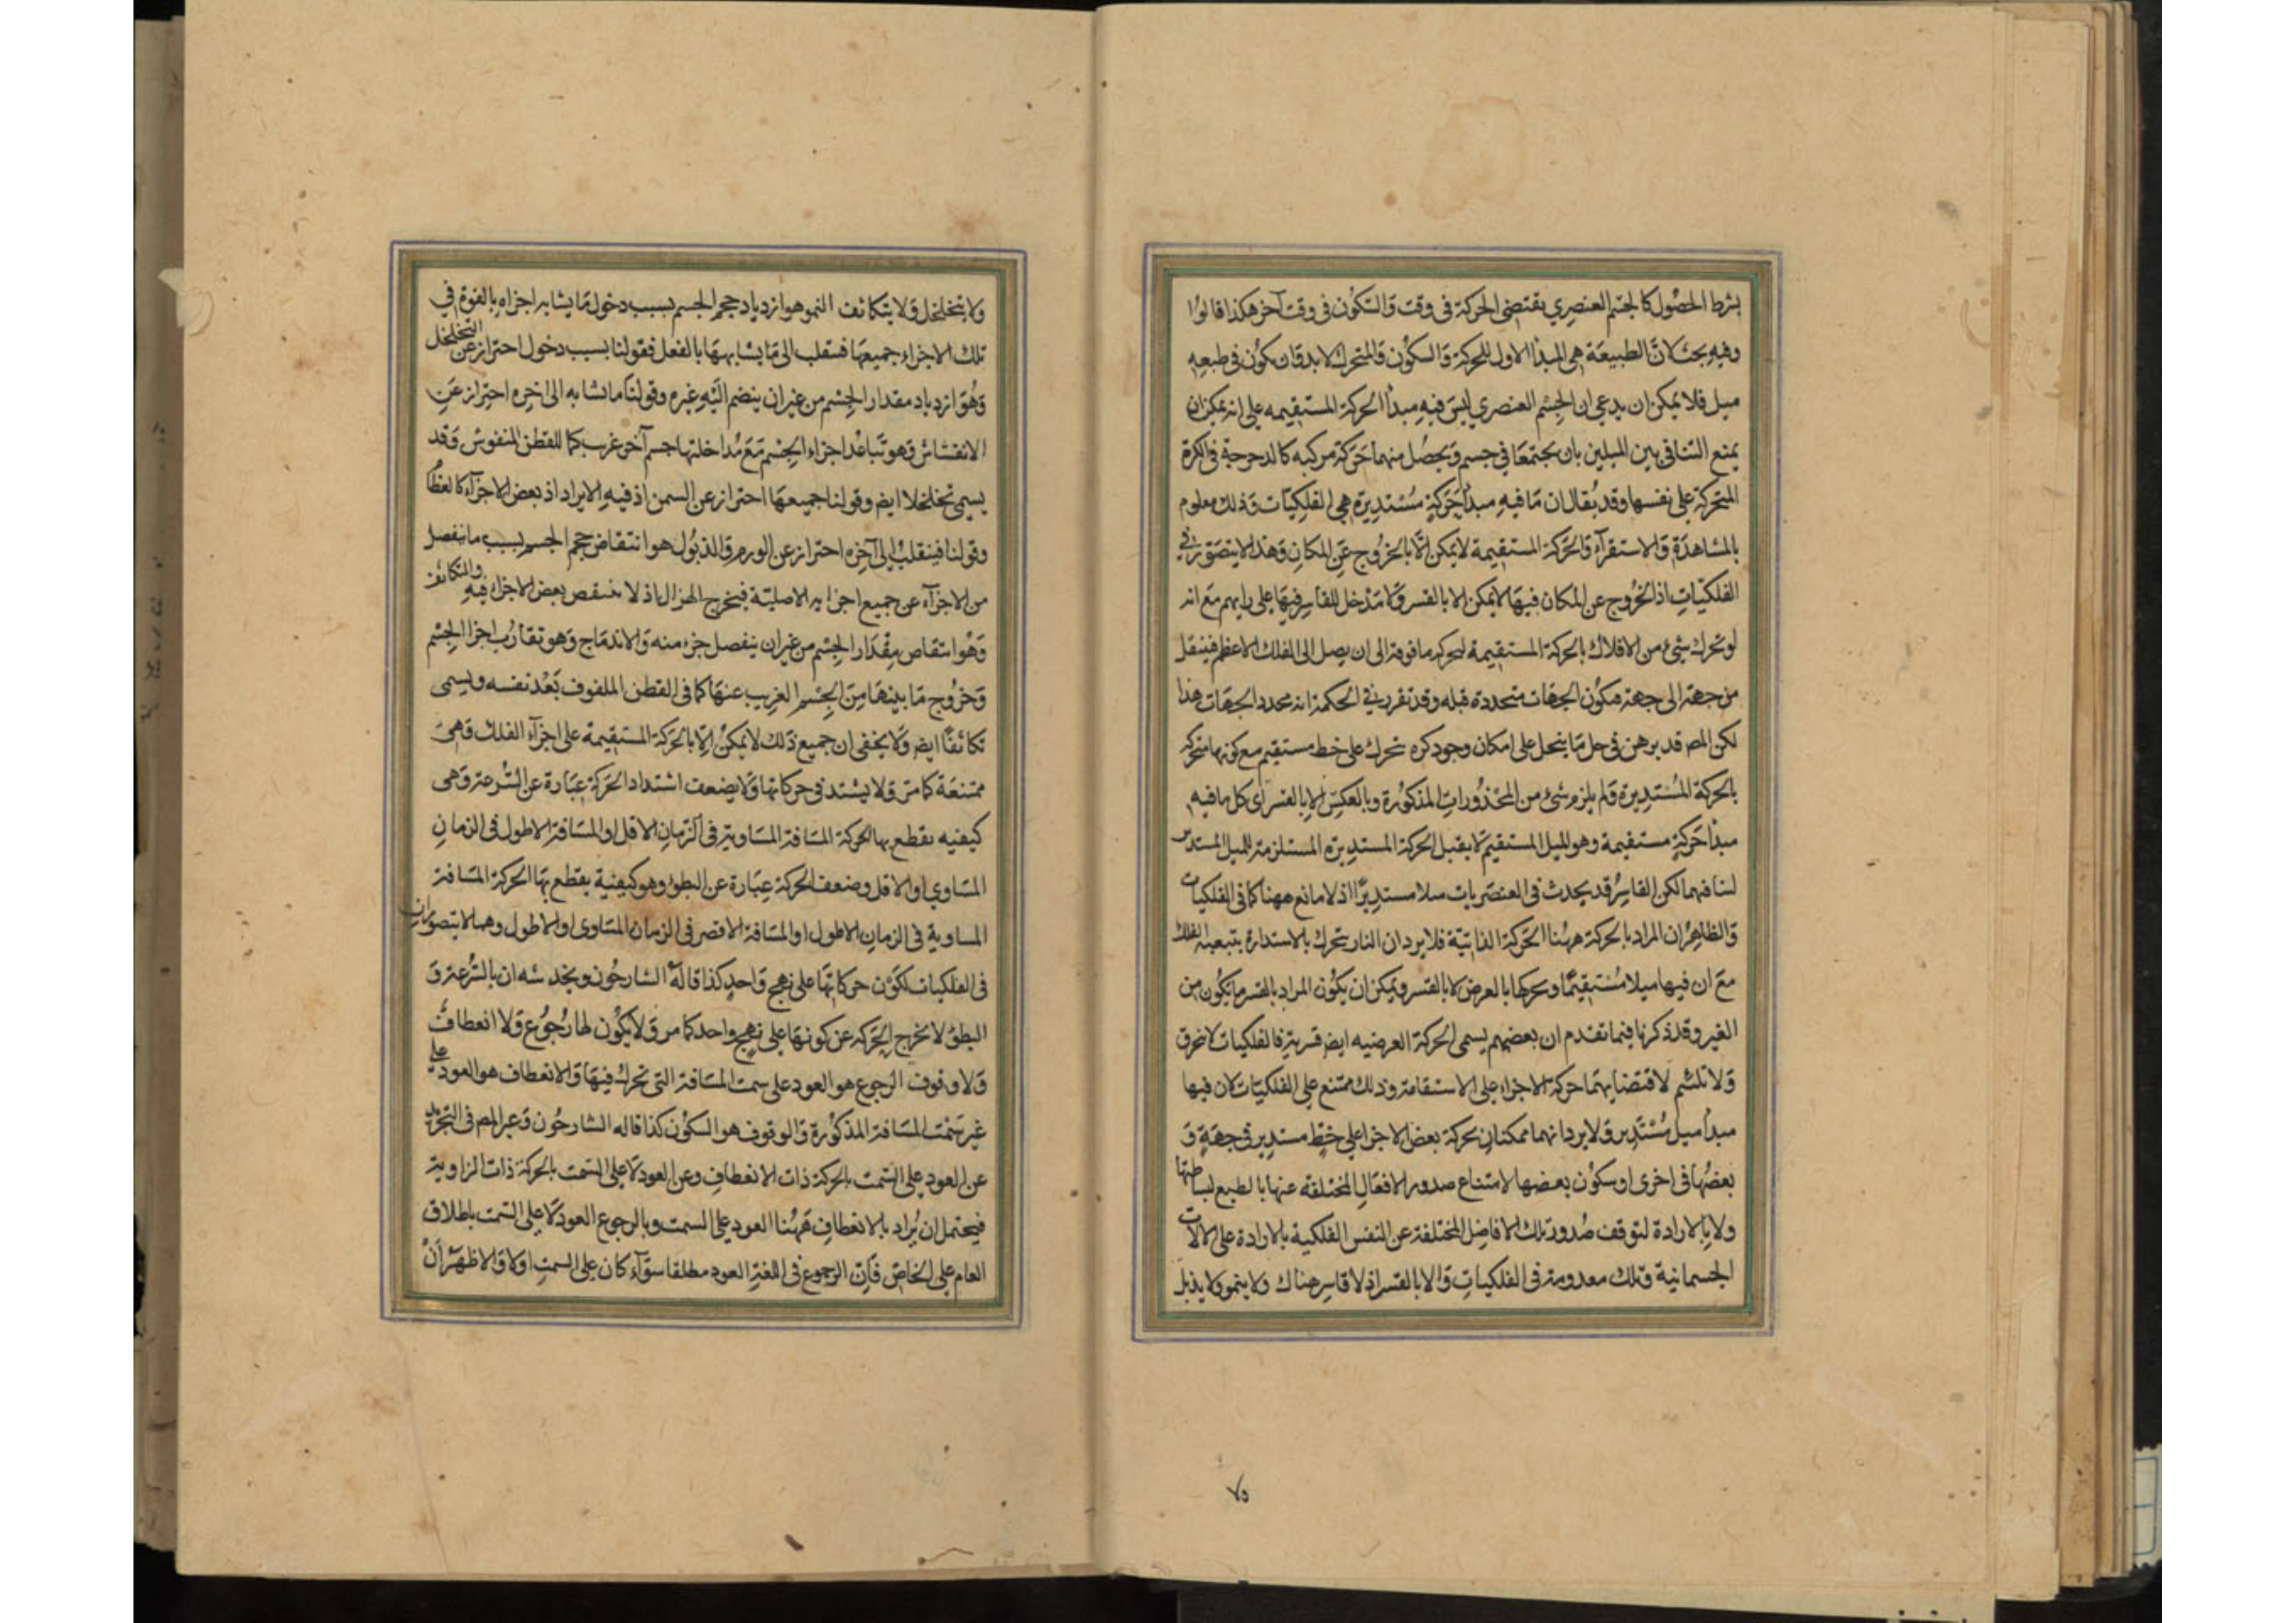 بشرط الحصول كالجسم العنصري يقتضى الحركة فى وقت والسكون فى وقت آخر هكذا قالوا
وفيه بحث لان الطبيعة هى المبدأ الاول للحركة والسكون فالمتحرك لابد وان يكون فى طبعه
ميل فلا يمكن ان يدعى ان الجسم العنصري ليس فيه مبدأ الحركة المستقيمه على انه يمكن ان
يمنع التنافى بين الميلين بان يجتمعا في جسم ويحصل منهما حركة مركبه كالدحرجة فى الكرة
المتحركة على نفسها وقد يقال ان ما فيه مبدأ حركة مستديرة هى الفلكيات وذلك معلوم
بالمشاهدة والاستقرآء والحركة المستقيمة لا يمكن الا بالخروج عن المكان وهذا لا يتصور في
الفلكيات اذ الخروج عن المكان فيها لا يمكن الا بالقسر ولا مدخل للقاسر فيها على رايهم مع انه
لو تحرك شئ من الافلاك بالحركة المستقيمة لتحركه ما فوقه الى ان يصل الى الفلك الاعظم فينتقل
من جهة الى جهة فيكون الجهات متحددة قبله وقد تقرر فى الحكمة انه محدد الجهات هذا
لكن المص قد برهن فى حل ما ينحل على امكان وجود كره تتحرك على خط مستقيم مع كونها متحركه
بالحركة المستديرة ولم يلزم شئ من المحذورات المذكورة وبالعكس الا بالقسر اى كل ما فيه
مبدأ حركة مستقيمة وهو الميل المستقيم لا يقبل الحركة المستديرة المستلزمة للميل المستدير
لتنافيهما لكن القاسر قد يحدث فى العنصريات ميلا مستديرًا اذ لا مانع ههنا كما فى الفلكيات
والظاهر ان المراد بالحركة ههنا الحركة الذاتية فلا يرد ان النار يتحرك بالاستدارة بتبعية الفلك
مع ان فيها ميلا مستقيمًا وتحركها بالعرض لا بالقسر ويمكن ان يكون المراد بالقسر ما يكون من
الغير وقد ذكرنا فيما تقدم ان بعضهم يسمى الحركة العرضيه ايضا قسرية فالفلكيات لا تخرق
ولا تلتئم لاقتضايهما حركة الاجزاء على الاستقامة وذلك ممتنع على الفلكيات لان فيها
مبدأ ميل مستدير ولا يرد انهما ممكنان بحركة بعض الاجزا على خط مستدير فى جهة و
بعضها فى اخرى او سكون بعضها لامتناع صدور الافعال المختلفه عنها بالطبع لبساطتها
ولا بالارادة لتوقف صدور تلك الافاضل المختلفة عن النفس الفلكية بالارادة على الالات
الجسمانية وتلك معدومة فى الفلكيات والا بالقسر اذ لا قاسر هناك ولا ينمو ولا يذبل
٧٥
ولا يتخلخل ولا يتكاثف النمو هو ازدياد حجم الجسم بسبب دخول ما يشابه اجزاه بالقوة في
تلك الاجزاء جميعها فينقلب الى ما يشابهها بالفعل فقولنا بسبب دخول احتراز عن التخلخل
وهو ازدياد مقدار الجسم من غير ان ينضم اليه غيره وقولنا ما تشابه الى اخره احتراز عن
الانفشاش وهو تباعد اجزاء الجسم مع مداخلتها جسم آخر غريب كما للقطن المنفوش وقد
يسمى تخلخلا ايضا وقولنا جميعها احتراز عن السمن اذ فيه الايراد اذ بعض الاجزآء كالعظام
وقولنا فينقلب الى آخره احتراز عن الورم والذبول هو انتقاض حجم الجسم بسبب ما ينفصل
من الاجزآء عن جميع اجزايه الاصلية فيخرج الهزال اذ لا ينتقص بعض الاجزاء فيه والتكاثف
وهو انتقاص مقدار الجسم من غير ان ينفصل جزء منه والاندماج وهو تقارب اجزا الجسم
وخروج ما بينها من الجسم الغريب عنها كما فى القطن الملفوف بعد نفسه ويسمى
تكاثفًا ايضا ولا يخفى ان جميع ذلك لا يمكن الا بالحركة المستقيمة على اجزآء الفلك وهى
ممتنعة كما مر ولا يشتد فى حركاتها ولا يضعف اشتداد الحركة عبارة عن السرعة وهى
كيفيه يقطع بها الحركة المسافة المساوية فى الزمان الاقل او المسافة الاطول فى الزمان
المساوي او الاقل وضعف الحركة عبارة عن البطؤ وهو كيفية يقطع بها الحركة المسافة
المساوية فى الزمان الاطول او المسافة الاقصر فى الزمان المساوى او الاطول وهما لا يتصوران
فى الفلكيات لكون حركاتها على نهج واحد كذا قاله الشارحون ويخدشه ان بالسرعة و
البطؤ لا تخرج الحركه عن كونها على نهج واحد كما مر ولا يكون لها رجوع ولا انعطاف
ولا وقوف الرجوع هو العود على سمت المسافة التى تحرك فيها والانعطاف هو العود على
غير سمت المسافة المذكورة والوقوف هو السكون كذا قاله الشارحون وعبر المص فى التجريد
عن العود على السمت بالحركة ذات الانعطاف وعن العود لا على السمت بالحركة ذات الزاوية
فيحتمل ان يراد بالانعطاف ههنا العود على السمت وبالرجوع العود لا على السمت باطلاق
العام على الخاص فان الرجوع فى اللغة العود مطلقا سوآء كان على السمت اولا والاظهر ان